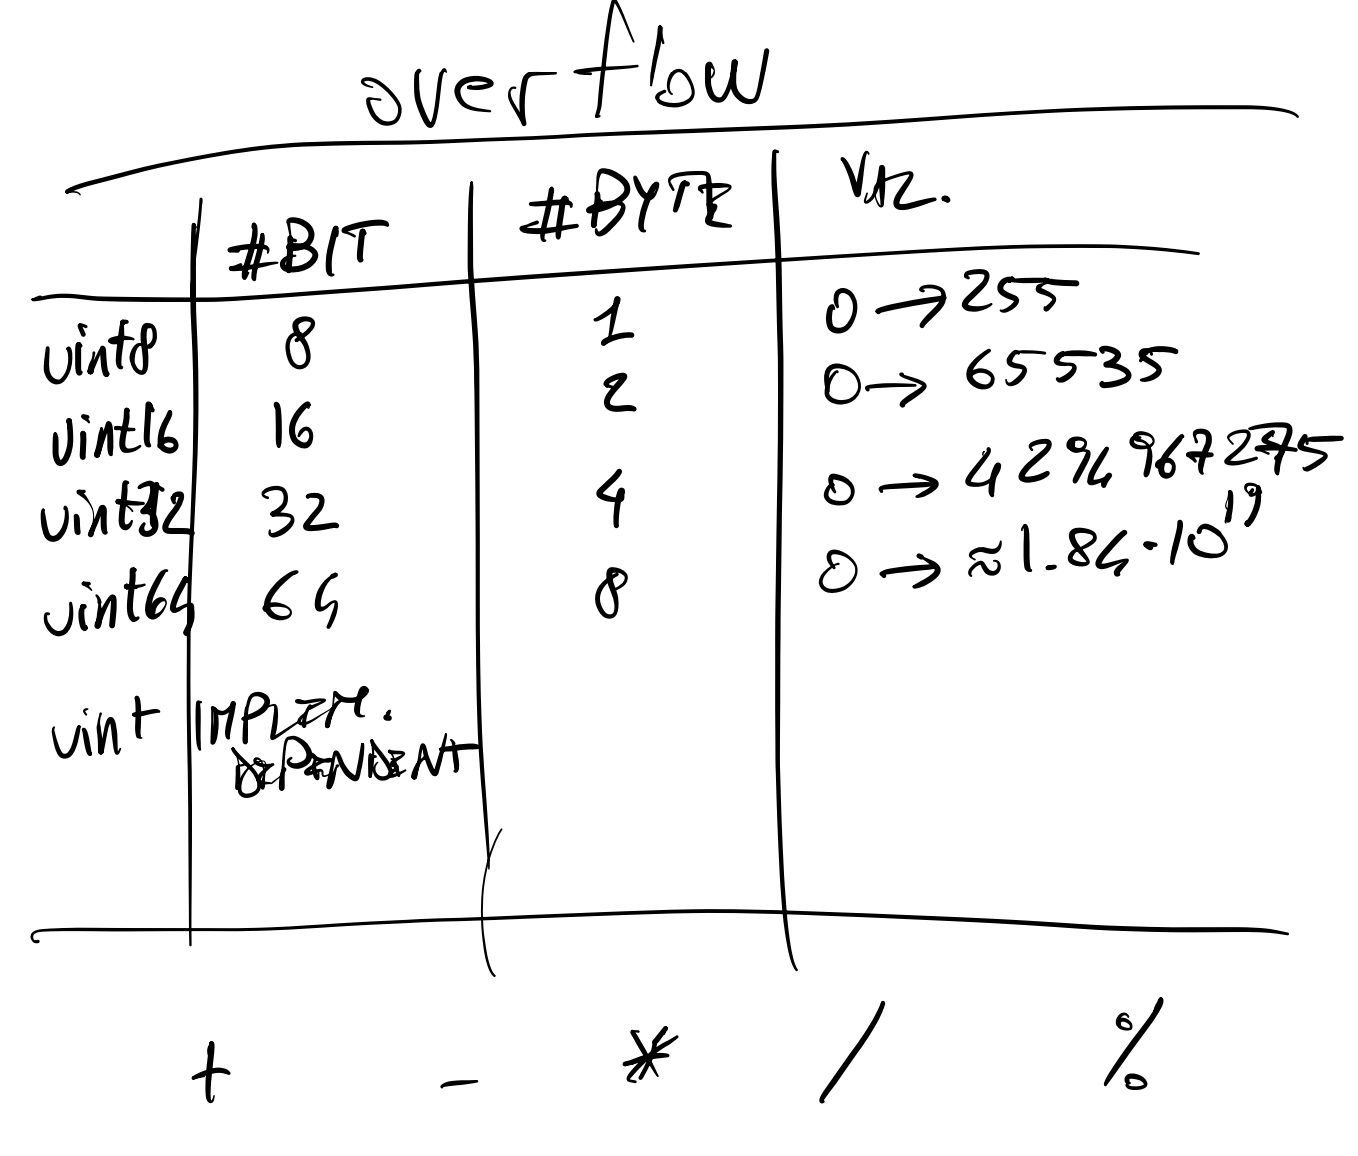 overflow
#BIT #BYTE VAL.
uint8 8 1 0 → 255
uint16 16 2 0 → 65535
uint32 32 4 0 → 4 294 967275
uint64 64 8 0 → ≈ 1.84·10¹⁹
uint IMPLEM.
DEPENDENT
+ - * / %